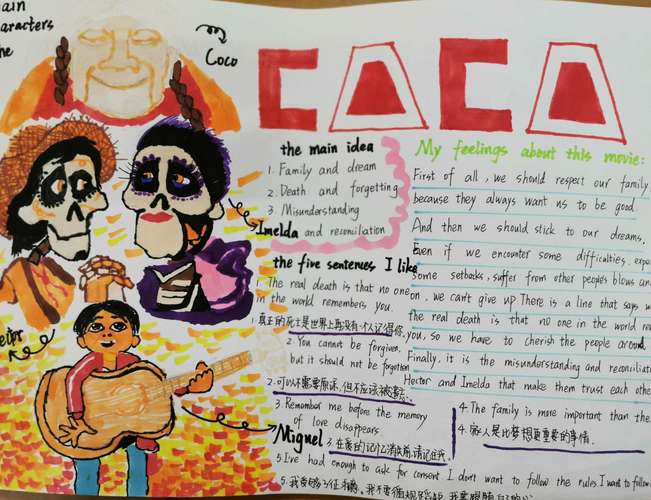 ain
aracters
he
Coco
COCO
the main idea
1. Family and dream
2. Death and forgetting
3. Misunderstanding
and reconiliation
Imelda
My feelings about this movie:
First of all, we should respect our family
because they always want us to be good.
And then we should stick to our dreams.
Even if we encounter some difficulties, expe
some setbacks, suffer from other people's blows and
on, we can't give up. There is a line that says
the real death is that no one in the world re
you, so we have to cherish the people around
Finally, it is the misunderstanding and reconiliati
Hector and Imelda that make them trust each othe
the five sentences I like
1. The real death is that no one
in the world remembers you.
1.真正的死亡是世界上再没有一个人记得你.
2. You cannot be forgiven,
but it should not be forgotten
2.可以不需要原谅,但不应该被遗忘.
3. Remember me before the memory
of love disappears
3.在爱的记忆消失前,请记住我.
4. The family is more important than the
4.家人是比梦想更重要的事情.
5. I've had enough to ask for consent. I don't want to follow the rules. I want to follow
5.我受够了征求,我不要循规蹈矩,我要跟随
ector
Miguel